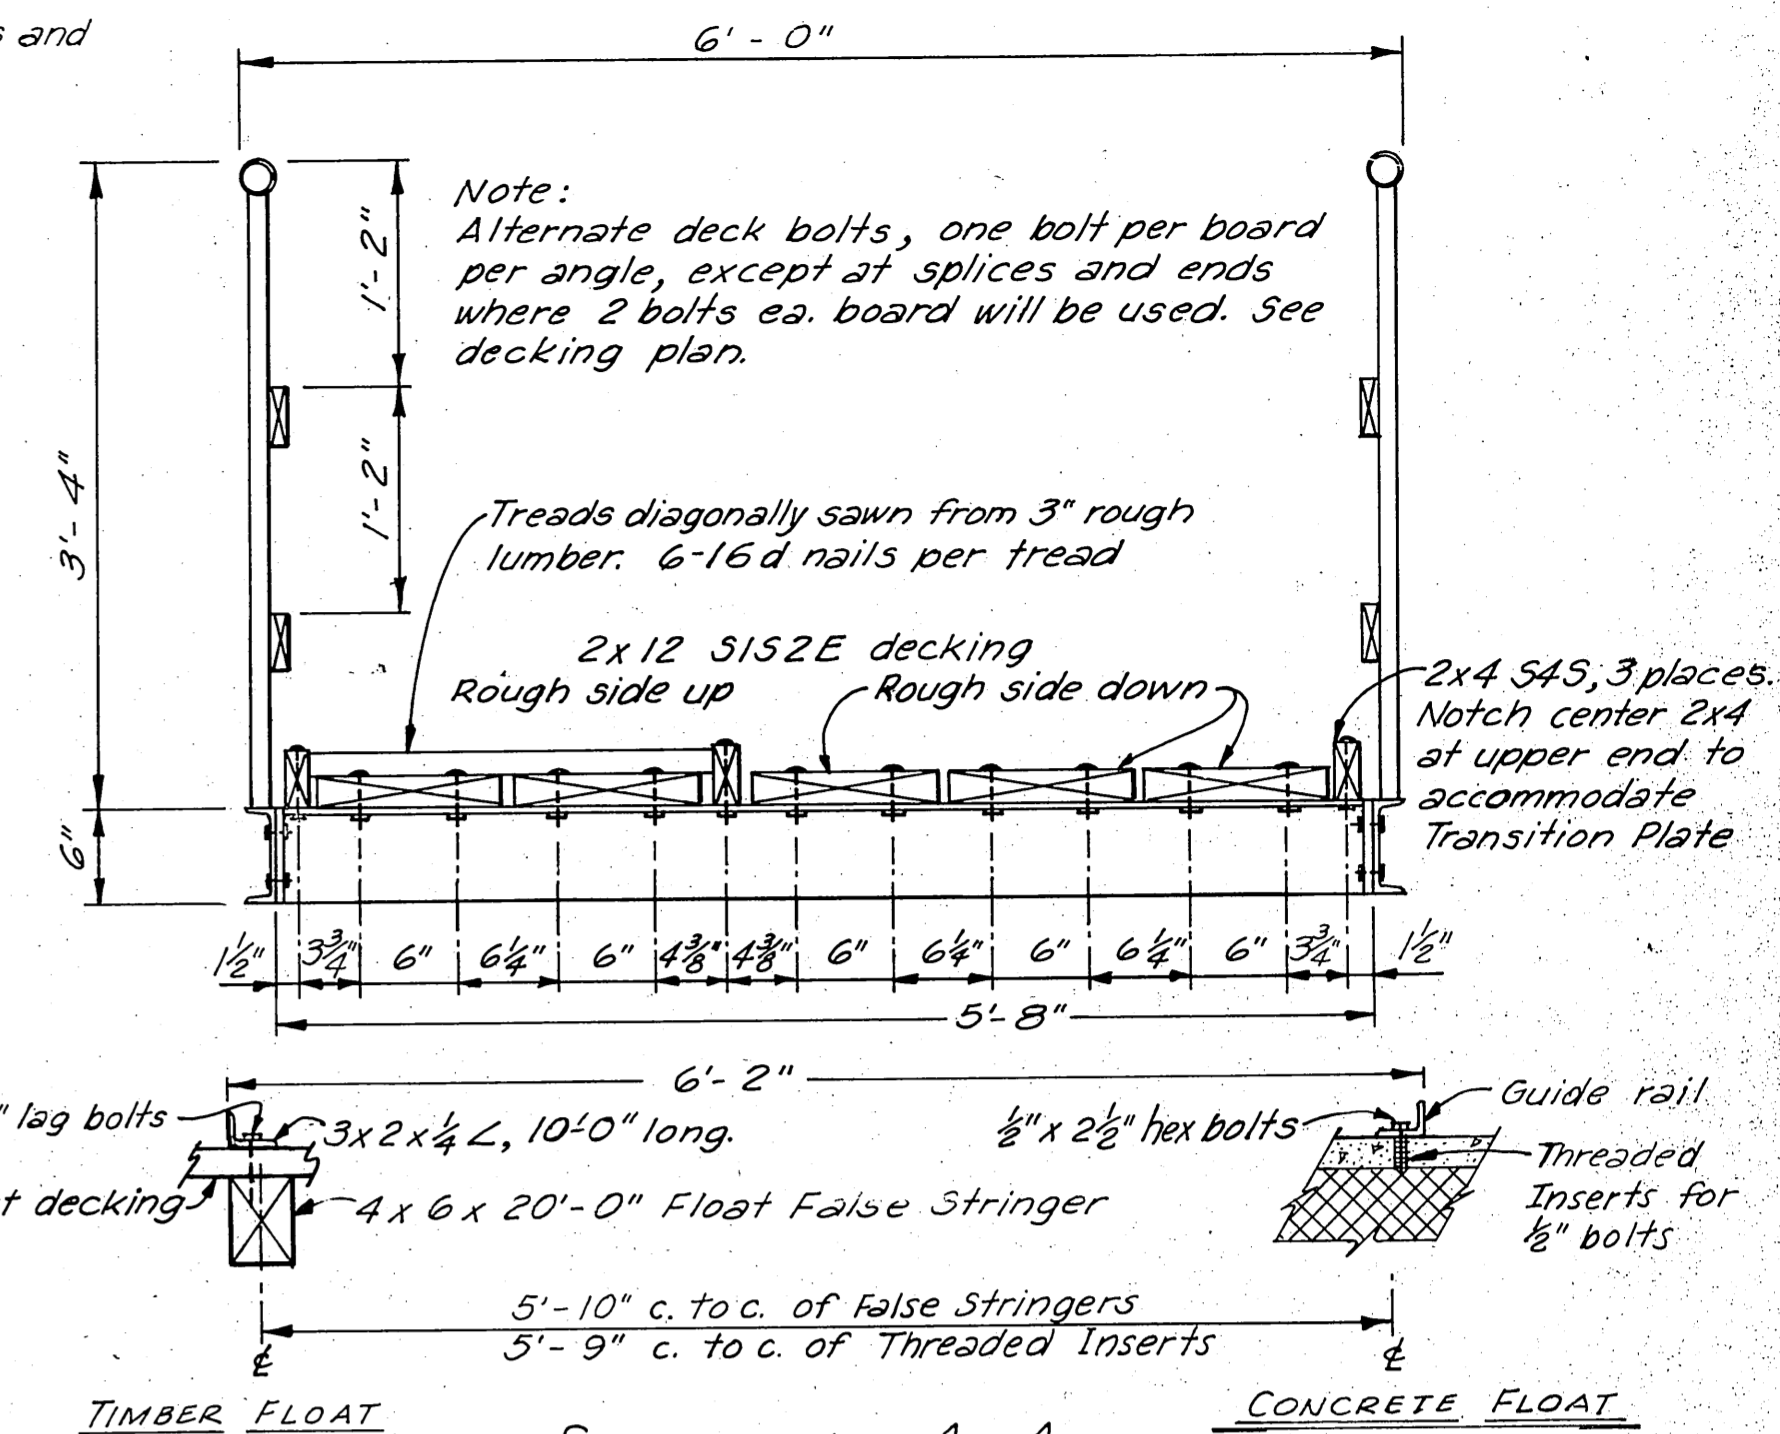 and
6'-0"
Note:
Alternate deck bolts, one bolt per board
per angle, except at splices and ends
where 2 bolts ea. board will be used. See
decking plan.
1'-2"
1'-2"
3'-4"
6"
Treads diagonally sawn from 3" rough
lumber. 6-16d nails per tread
2x12 S1S2E decking
Rough side up
Rough side down
2x4 S4S, 3 places.
Notch center 2x4
at upper end to
accommodate
Transition Plate
1½" 3¾" 6" 6¼" 6" 4⅜" 4⅜" 6" 6¼" 6" 6¼" 6" 3¾" 1½"
5'-8"
6'-2"
" lag bolts
3x2x¼ ∠, 10'-0" long.
½" x 2½" hex bolts
Guide rail
Threaded
Inserts for
½" bolts
decking
4 x 6 x 20'-0" Float False Stringer
5'-10" c. to c. of False Stringers
5'-9" c. to c. of Threaded Inserts
℄ ℄
TIMBER FLOAT
CONCRETE FLOAT